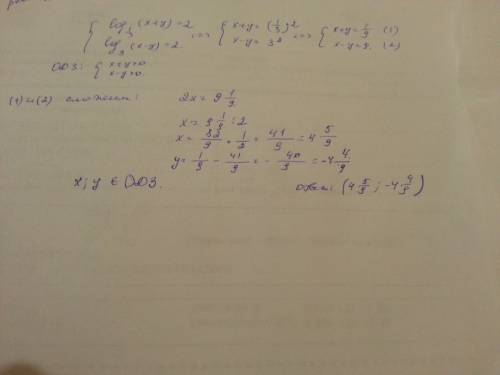 { log_{1/3} (x+y) = 2 <=> { x+y = (1/3)^2 <=> { x+y = 1/9 (1)
log_3 (x-y) = 2. x-y = 3^2 x-y = 9. (2)
ОДЗ: { x+y>0
x-y>0.
(1) и (2) сложим: 2x = 9 1/9
x = 9 1/9 : 2
x = 82/9 * 1/2 = 41/9 = 4 5/9
y = 1/9 - 41/9 = - 40/9 = -4 4/9
x; y ∈ ОДЗ. Ответ: (4 5/9 ; -4 4/9)